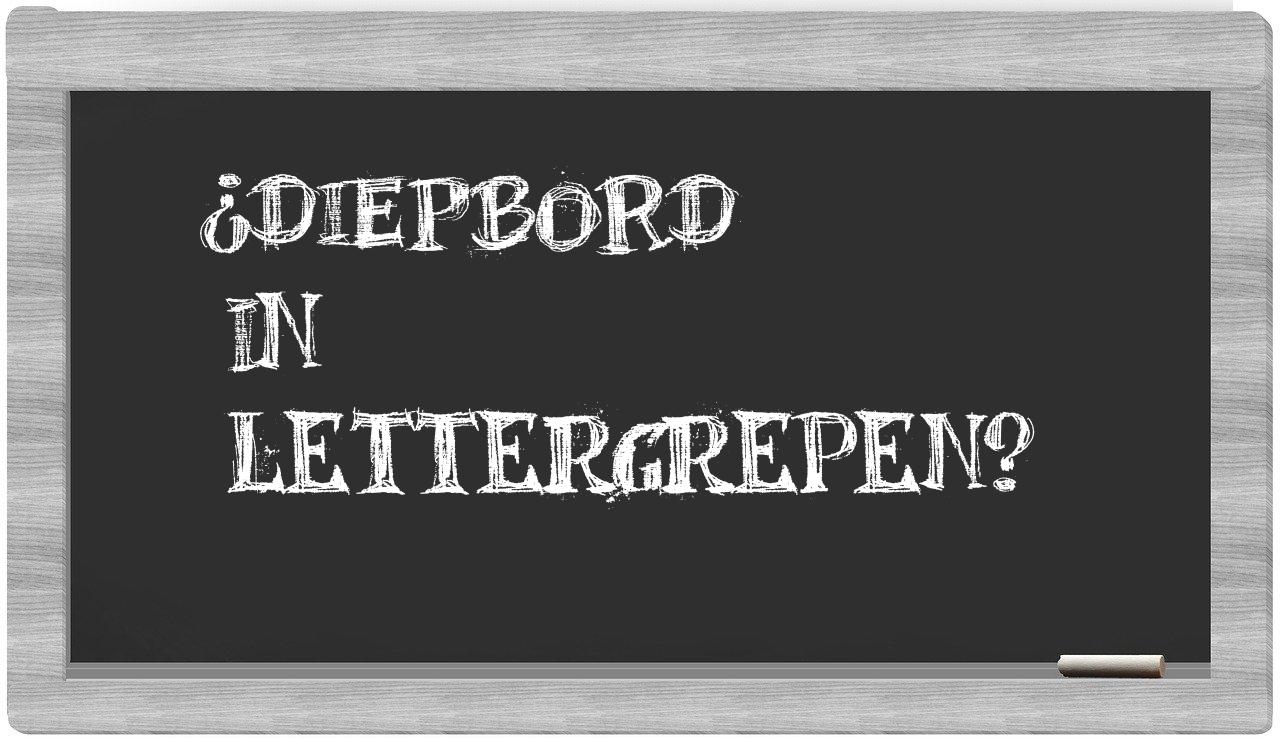 ¿DIEPBORD
IN
LETTERGREPEN?